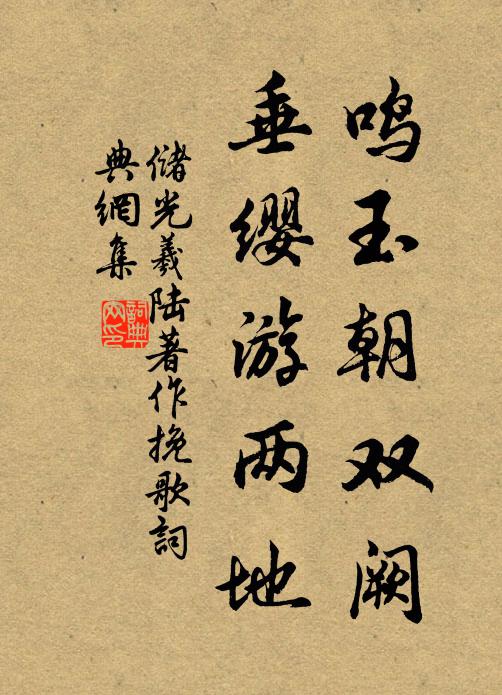 鸣玉朝双阙
垂缨游两地
储光羲陆著作挽歌詞
典網集
詞典
网印